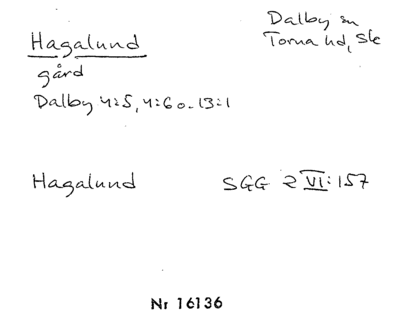 Hagalund
Dalby sn
Torna hd, Sk
gård
Dalby 4:5, 4:6 o. 13:1
Hagalund SGG 2 VI:157
Nr 16136